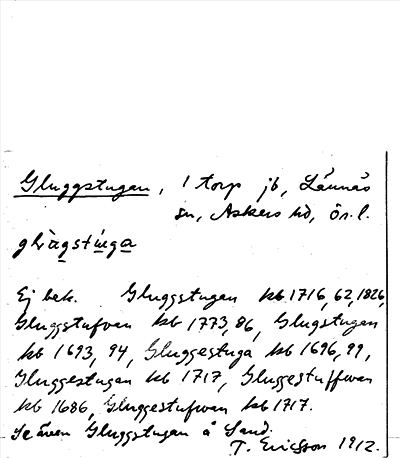 Gluggstugan, 1 torp jb, Lännäs
sn, Askers hd, Ör. l.
glùgstùga
Ej bek. Gluggstugan kb 1716, 62, 1826,
Gluggstufvan kb 1773, 86, Glugstugan
kb 1693, 94, Gluggestuga kb 1696, 99,
Gluggestugan kb 1717, Gluggestuffwan
kb 1686, Gluggestufwan kb 1717.
Se även Gluggstugan å Sand.
T. Ericsson 1912.